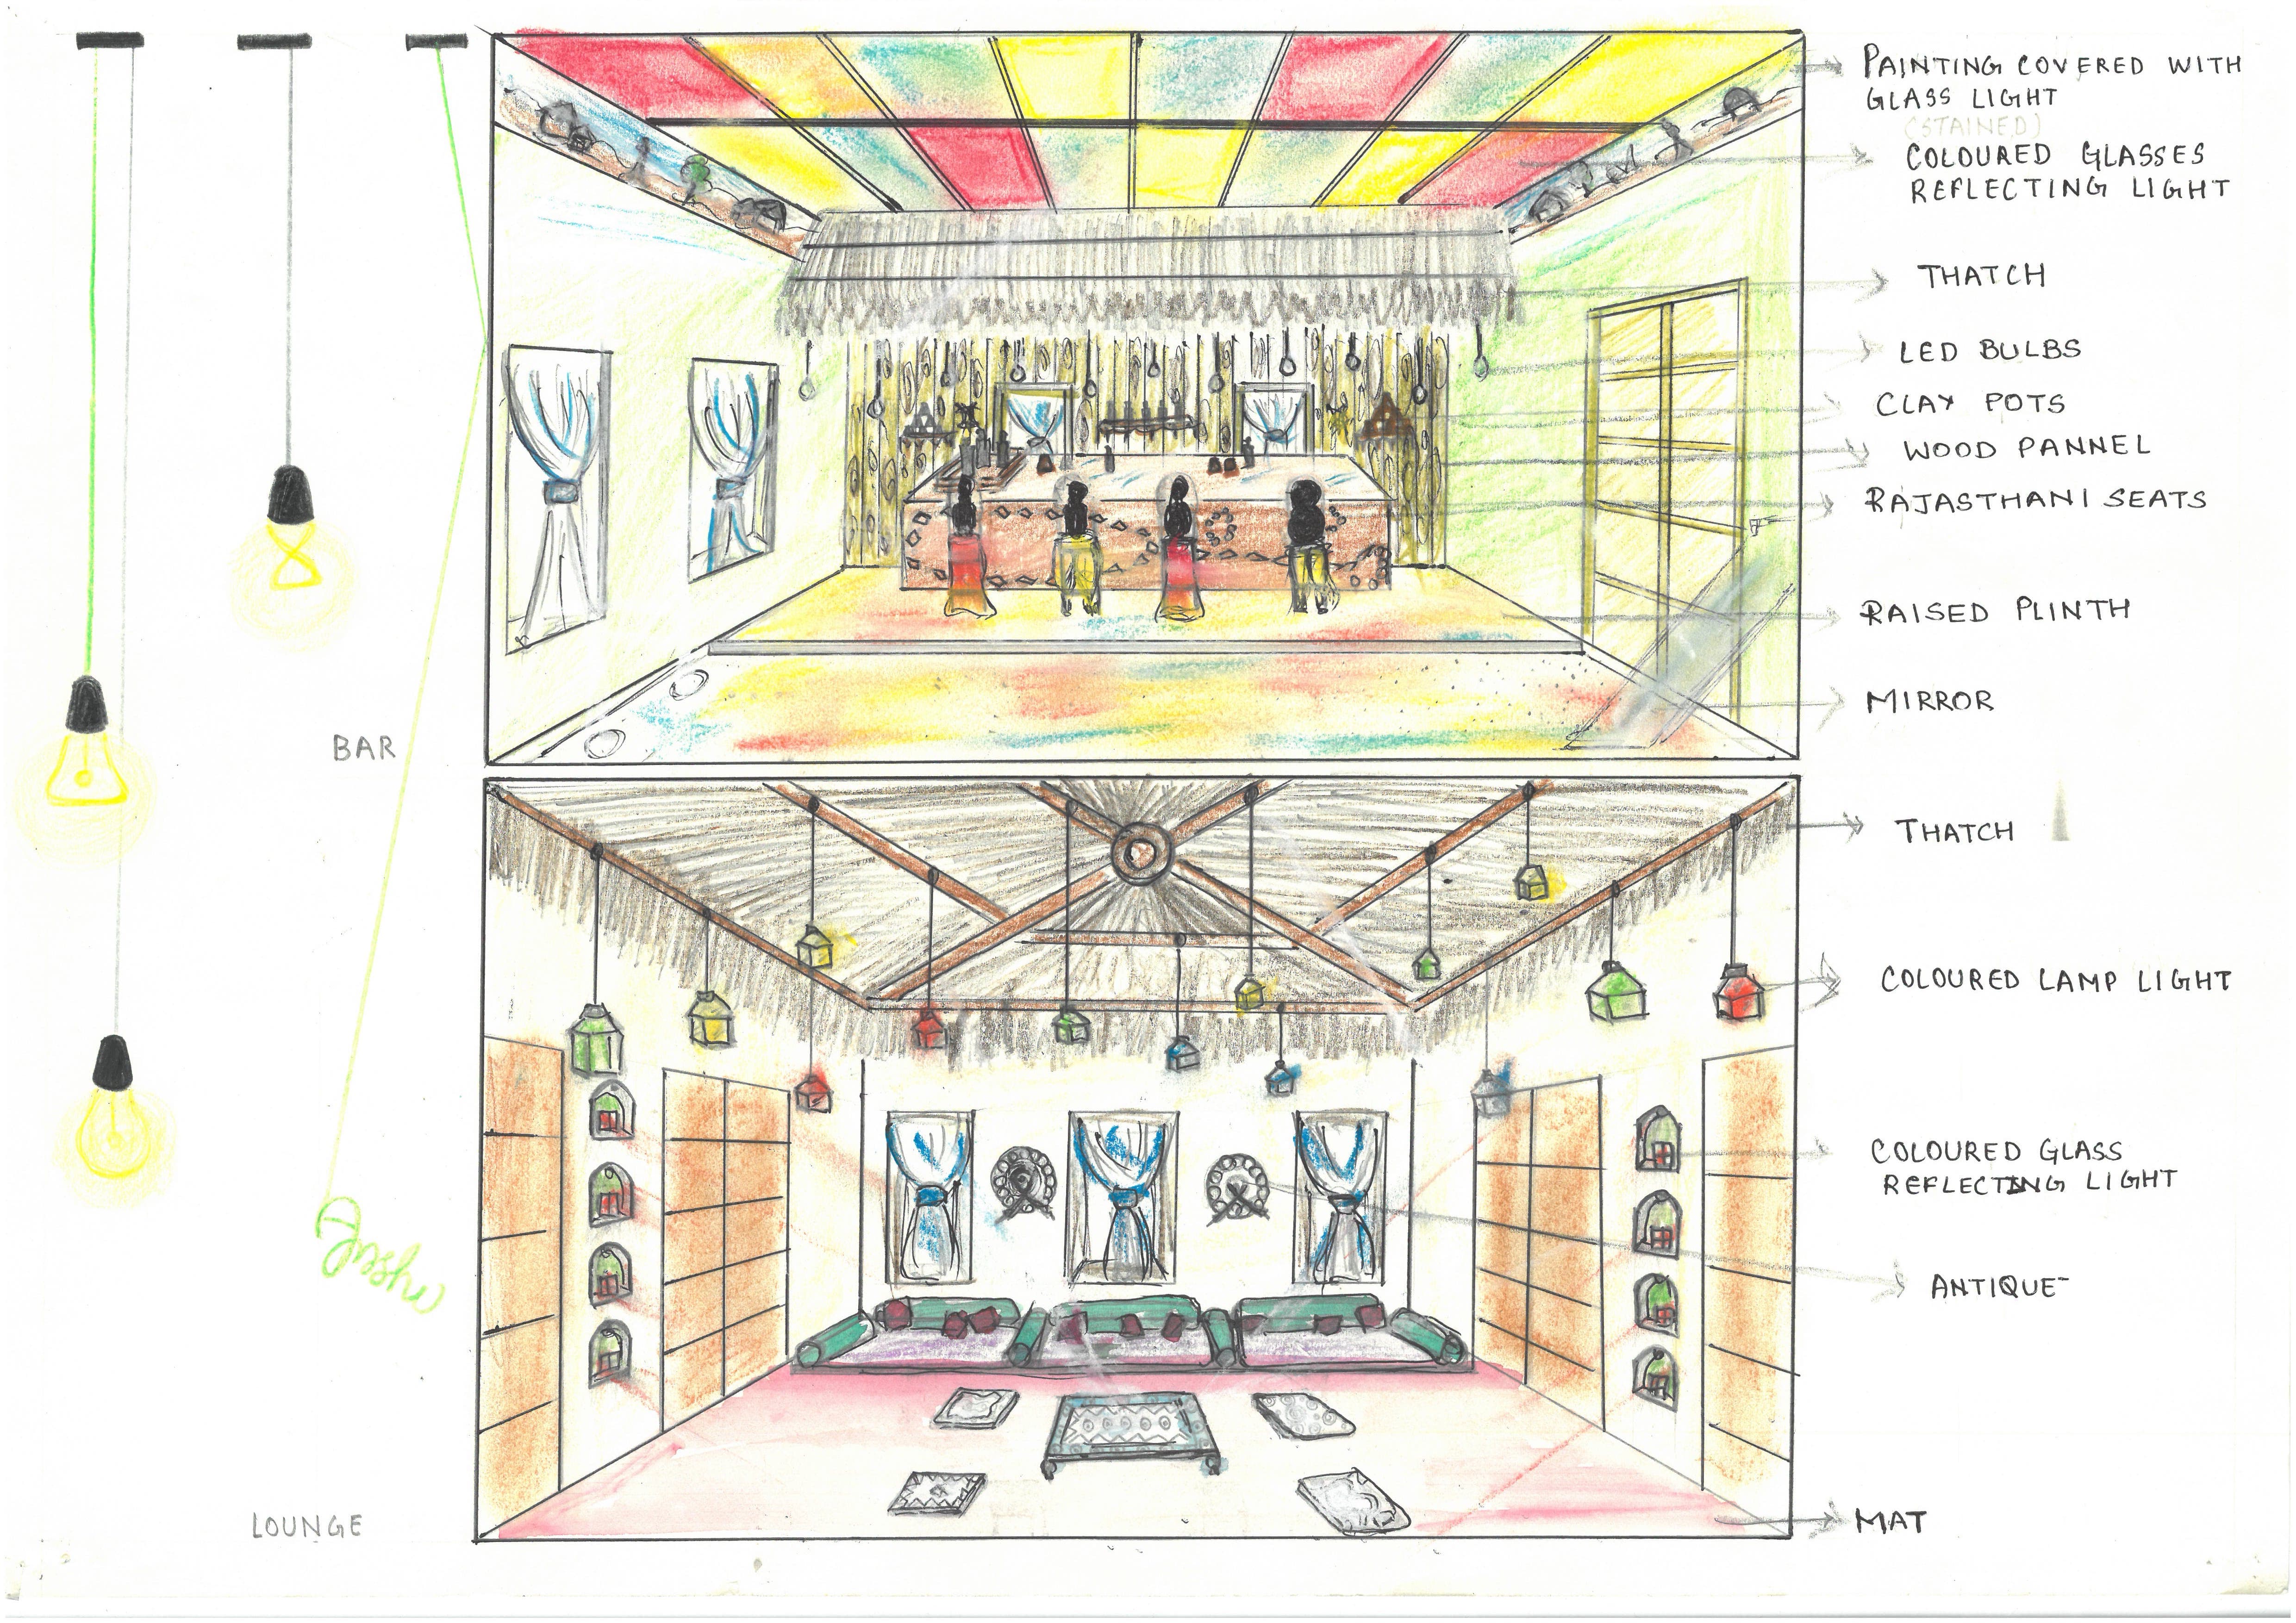 PAINTING COVERED WITH
GLASS LIGHT
(STAINED)
COLOURED GLASSES
REFLECTING LIGHT
THATCH
LED BULBS
CLAY POTS
WOOD PANNEL
RAJASTHANI SEATS
RAISED PLINTH
MIRROR
BAR
THATCH
COLOURED LAMP LIGHT
COLOURED GLASS
REFLECTING LIGHT
ANTIQUE
MAT
LOUNGE